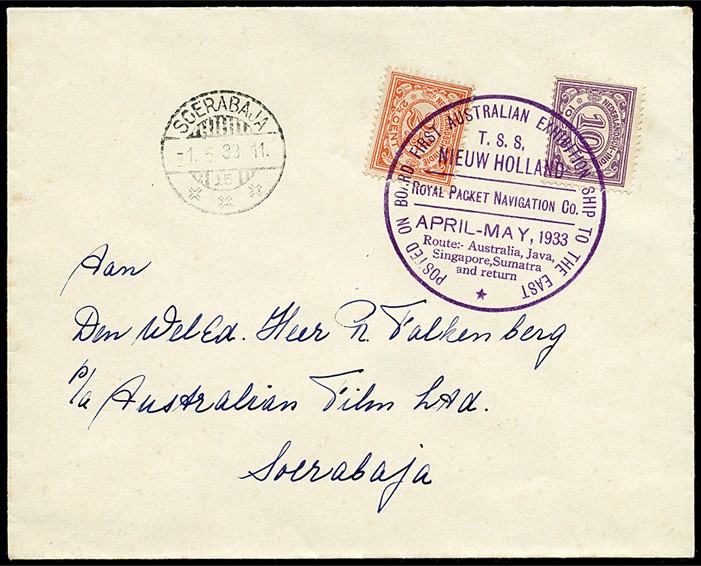 SOERABAJA
-1.5.33 11.
15
NEDERLANDSCH-INDIË
2½ CENT
NEDERLANDSCH-INDIË
10
POSTED ON BOARD FIRST AUSTRALIAN EXHIBITION SHIP TO THE EAST
T. S. S.
NIEUW HOLLAND
ROYAL PACKET NAVIGATION Co.
APRIL-MAY, 1933
Route:- Australia, Java,
Singapore, Sumatra
and return
Aan
Den WelEd. Heer Ph. Falkenberg
P/a Australian Film Ltd.
Soerabaja